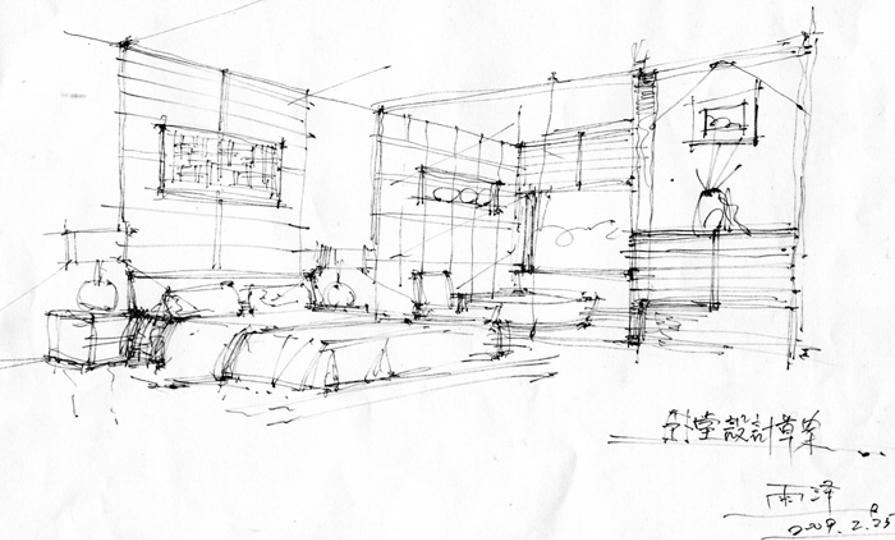 堂設計草案
雨澤
2009.2.25